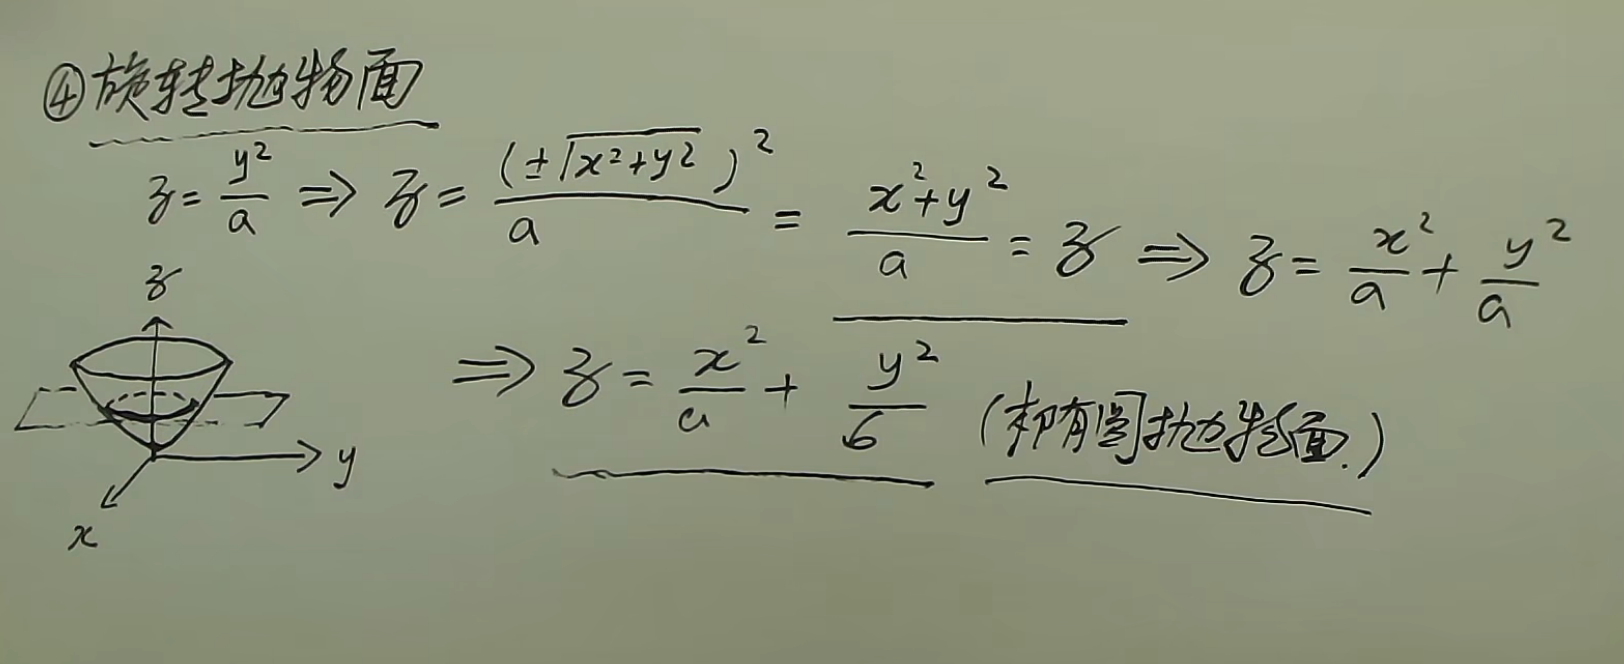 ④旋转抛物面
z = y²/a ⇒ z = (±√(x²+y²))²/a = (x²+y²)/a = z ⇒ z = x²/a + y²/a
⇒ z = x²/a + y²/b (椭圆抛物面.)
z
y
x